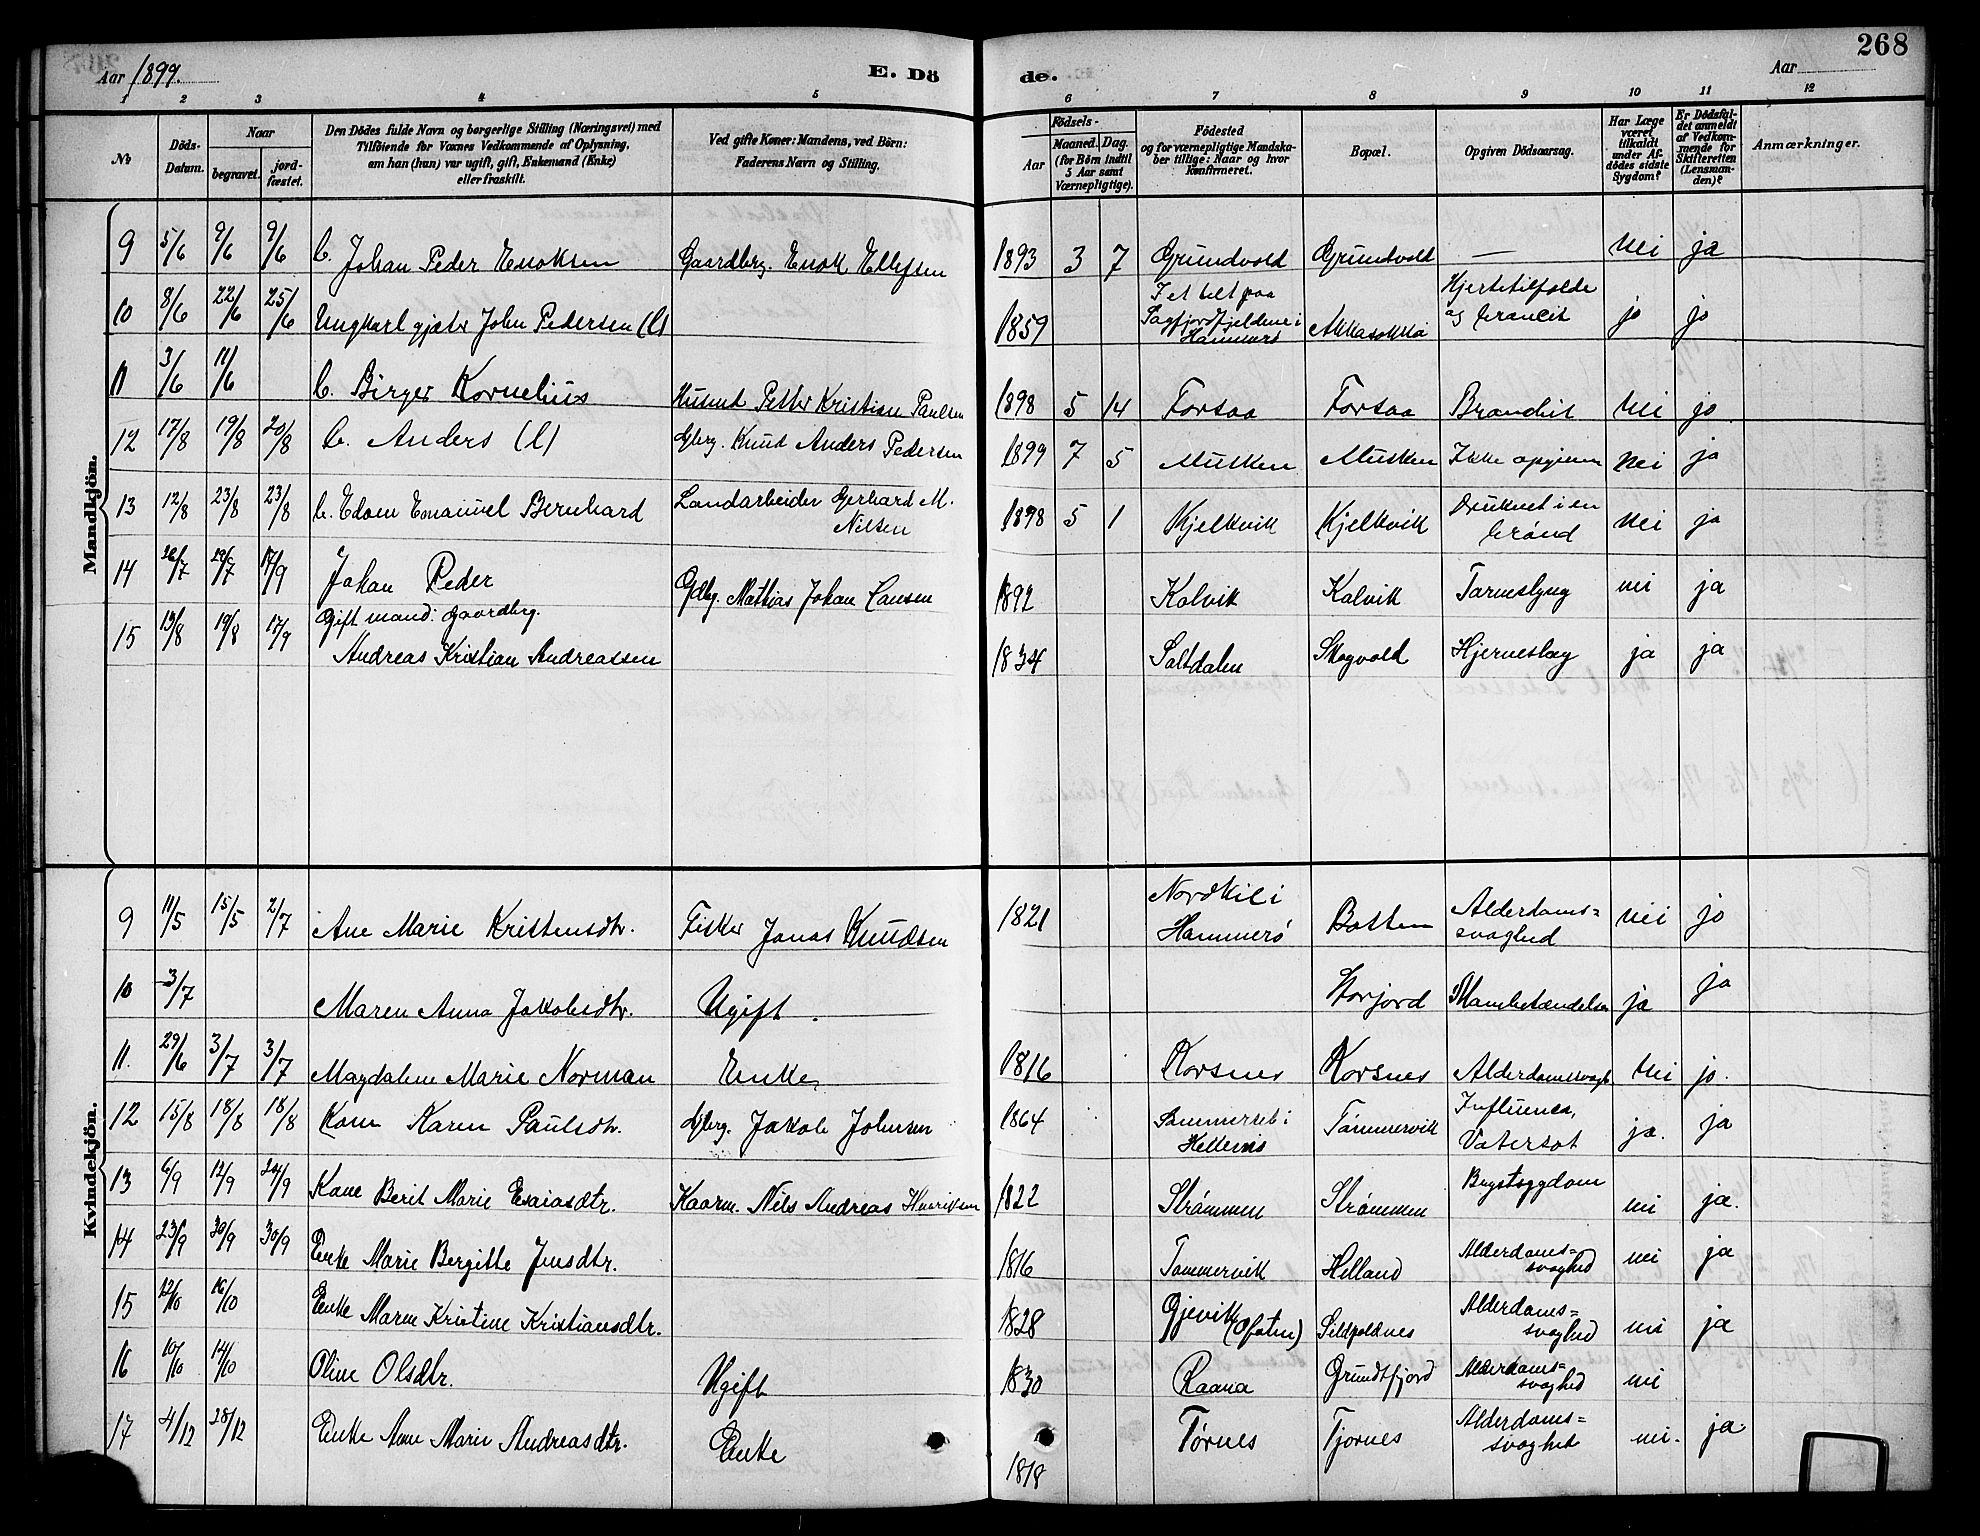 268
Aar 1899.
E. Dö de.
Aar
1 2 3 4 5 6 7 8 9 10 11 12
No
Döds-Datum.
Naar
begravet.
jord-fæstet.
Den Dödes fulde Navn og borgerlige Stilling (Næringsvei) med
Tilföiende for Voxnes Vedkommende af Oplysning,
om han (hun) var ugift, gift, Enkemand (Enke)
eller fraskilt.
Ved gifte Koner: Mandens, ved Börn:
Faderens Navn og Stilling.
Födsels-
Aar
Maaned.
Dag.
(for Börn indtil
5 Aar samt
Værnepligtige).
Födested
og for værnepligtige Mandska-
ber tillige: Naar og hvor
konfirmeret.
Bopæl.
Opgiven Dödsaarsag.
Har Læge
været
tilkaldt
under Af-
dödes sidste
Sygdom?
Er Dödsfal-
det anmeldt
af Vedkom-
mende for
Skifteretten
(Lensman-
den)?
Anmærkninger.
Mandkjön.
9 5/6 9/6 9/6 b. Johan Peder Enoksen Gaardbrg. Enok Ellefsen 1893 3 7 Grundvold Grundvold — nei ja
10 8/6 22/6 25/6 Ungkarl gjæter John Pedersen (l) 1859 I et telt paa Sagfjordfjeldene i Hammerø Hjertetilfælde og jo jo
11 3/6 11/6 b. Birger Kornelius Husmd Petter Kristian Paulsen 1898 5 14 Forsaa Forsaa nei jo
12 17/8 19/8 20/8 b. Anders (l) Gbrg. Knud Anders Pedersen 1899 7 5 Musken Musken Ikke opgiven nei ja
13 12/8 23/8 23/8 b. Edom Emanuel Bernhard Landarbeider Gerhard M. Nilsen 1898 5 1 Kjelkvik Kjelkvik Druknet i en brønd nei ja
14 26/7 29/7 17/9 Johan Peder Gdbrg. Mathias Johan Hansen 1892 Kalvik Kalvik Tarmeslyng nei ja
15 13/8 19/8 17/9 Gift mand: Gaardbrg. Andreas Kristian Andreassen 1834 Saltdalen Skogvold Hjerneslag ja ja
Kvindekjön.
9 11/5 15/5 2/7 Ane Marie Kristensdtr. Fisker Jonas Knudsen 1821 Nordkil i Hammerø Botten Alderdoms=svaghed nei jo
10 3/7 Maren Anna Jakobsdtr. Ugift. Storjord ja ja
11. 29/6 3/7 3/7 Magdalene Marie Norman Enke 1816 Korsnes Korsnes Alderdomssvagh nei jo.
12 15/8 18/8 18/8 Kone Karen Paulsdtr. Gbrg. Jakob Johnsen 1864 Sommerset i Tømmervik Influensa, Vatersot ja. ja
13 6/9 12/9 24/9 Kone Berit Marie Esaiasdtr. Kaarm. Nils Andreas Henriksen 1822 Strømmen Strømmen Brystsygdom nei ja.
14 23/9 30/9 30/9 Enke Marie Bergitte Jensdtr. 1816 Tømmervik Helland Alderdoms=svaghed nei ja
15 12/10 16/10 Enke Maren Kristine Kristiansdtr. 1828 Gjevik (Ofoten) Sildpoldnes Alderdoms=svaghed nei ja
16 10/10 14/10 Oline Olsdtr. Ugift 1830 Raana Grundtfjord Alderdoms=svaghed nei
17 4/12 28/12 Enke Ane Marie Andreasdtr. Enke 1818 Tørnes Tjornes Alderdoms=svaghet nei. ja